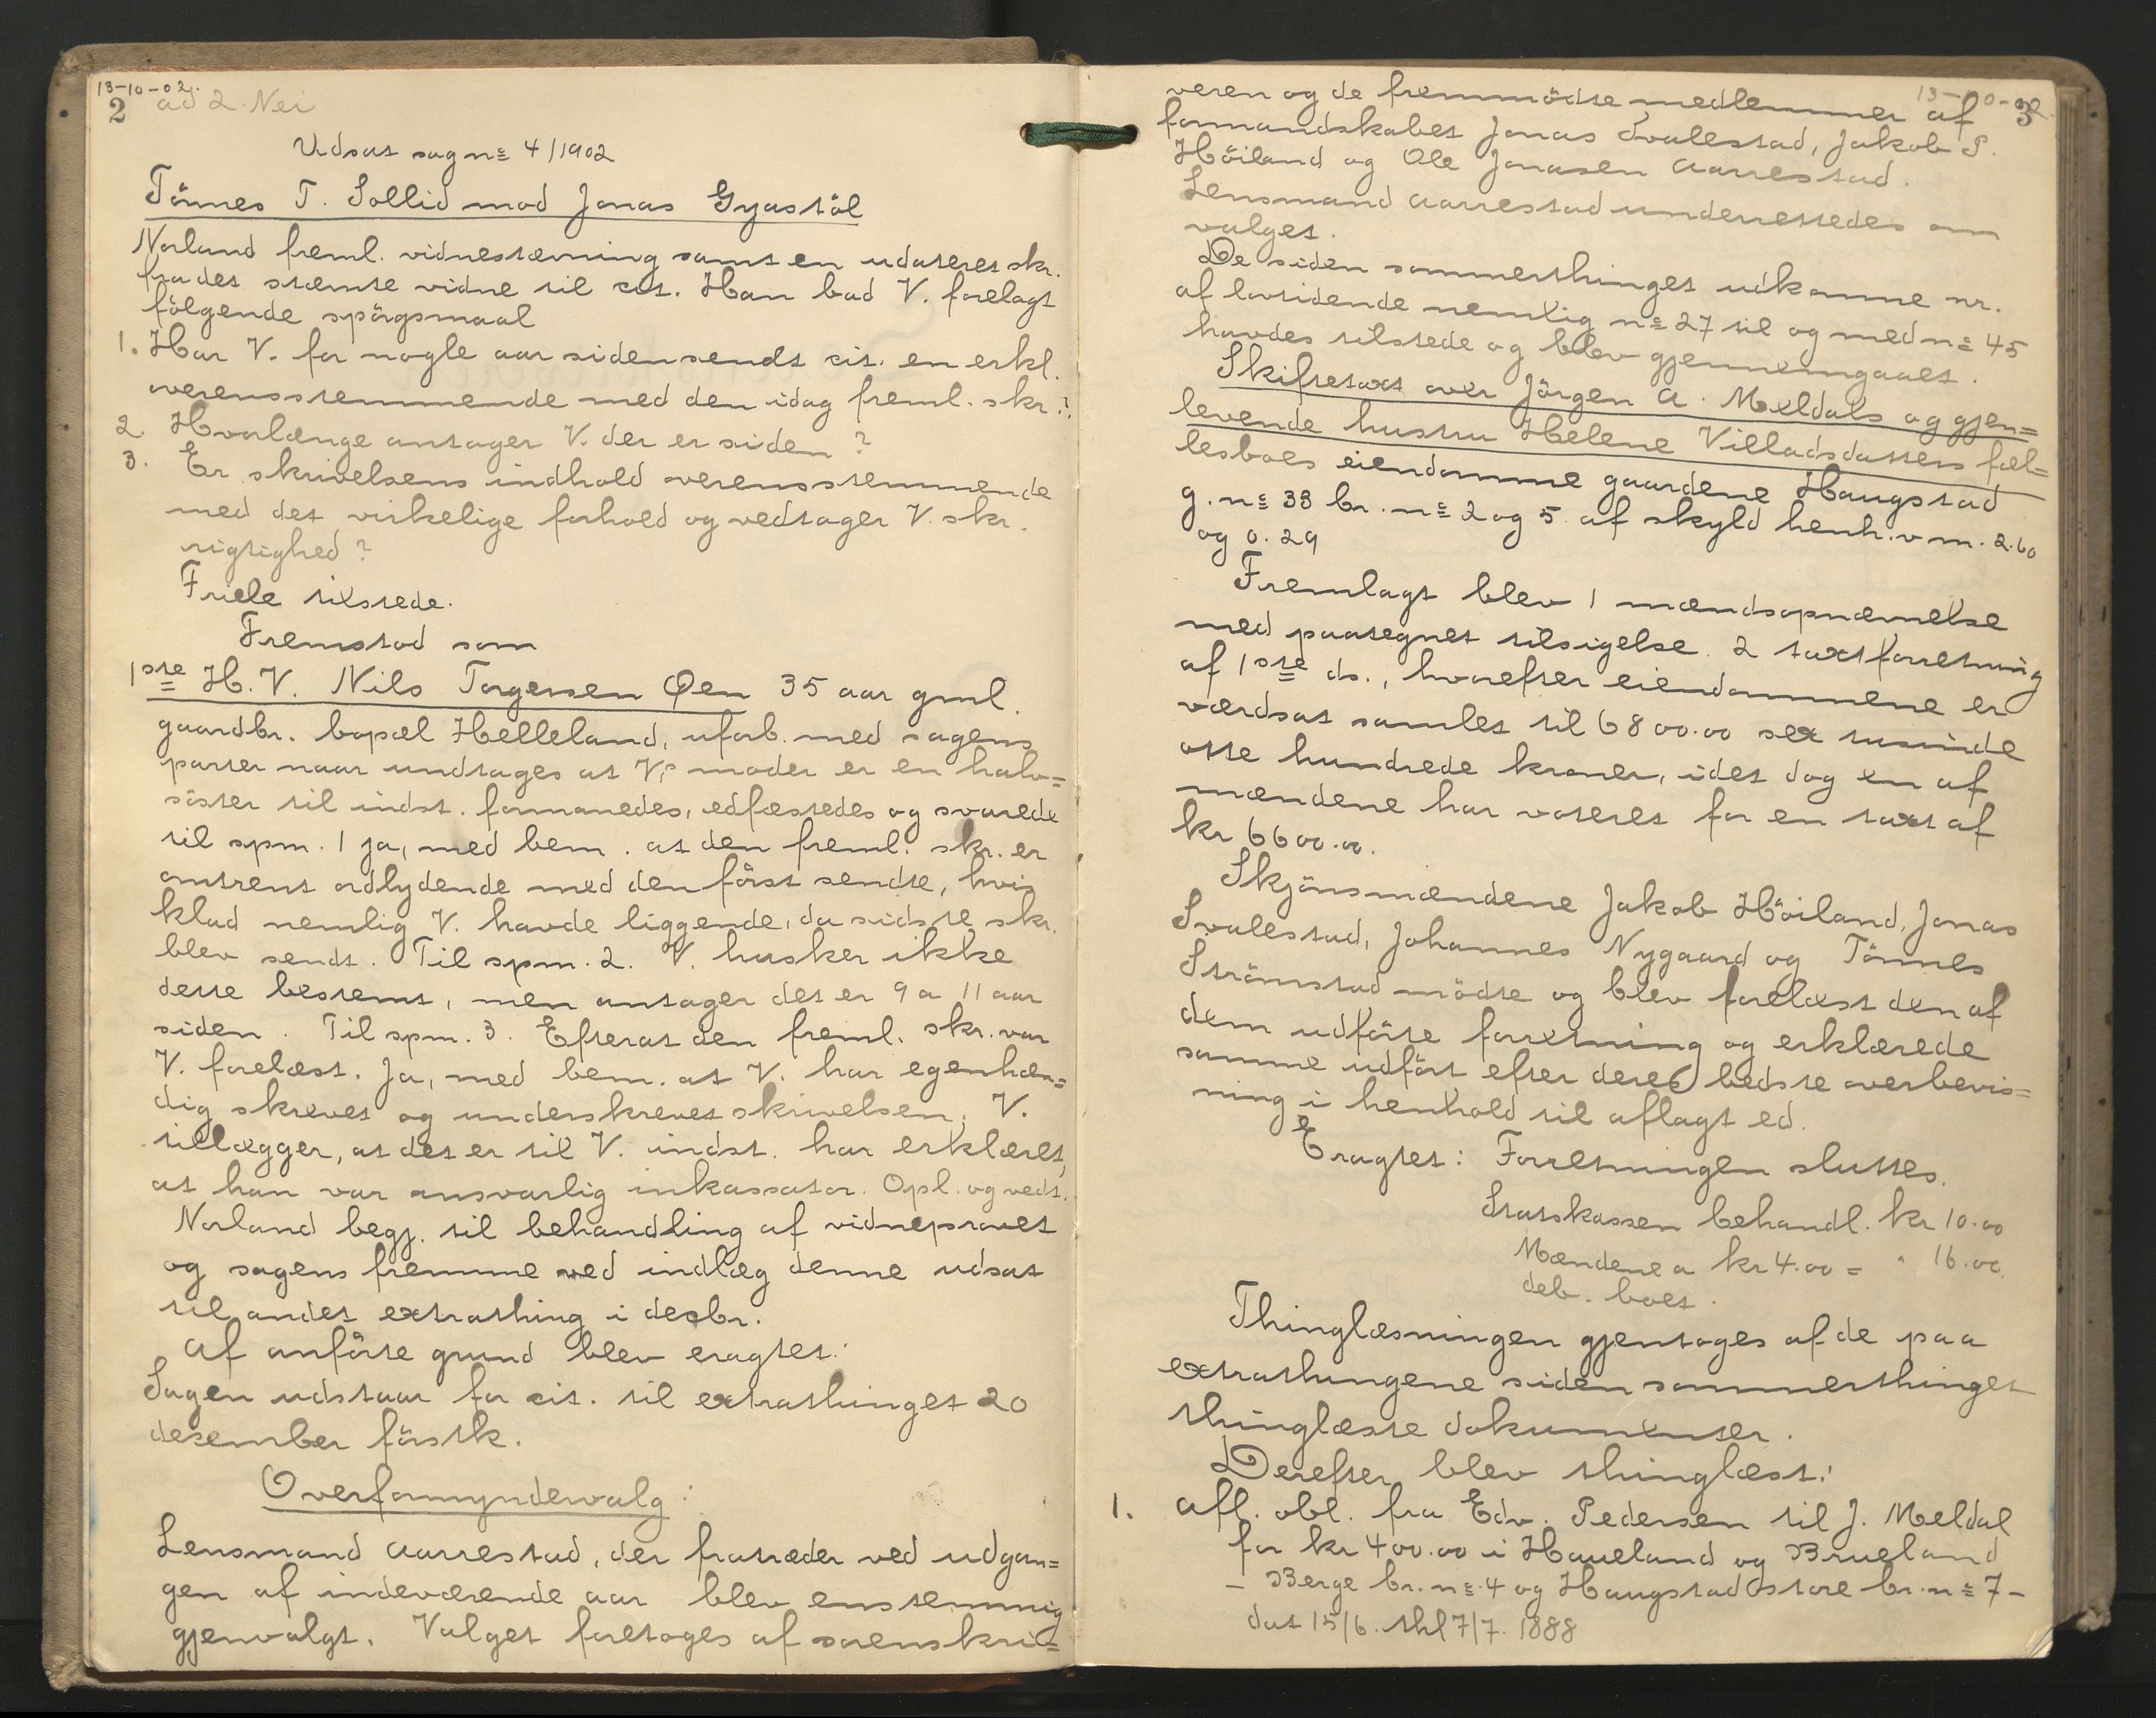 13-10-02.
2 ad 2. Nei
Udsat sag nº 4/1902
Tönnes T. Sollid mod Jonas Gyastöl
Norland freml. vidnestævning samt en udateret skr.
fra det stæmte vidne til cit. Han bad V. forelagt
fölgende spörgsmaal
1. Har V. for nogle aar siden sendt cit. en erkl.
overensstemmende med den idag freml. skr.?
2. Hvorlænge antager V. der er siden?
3. Er skrivelsens indhold overensstemmende
med det virkelige forhold og vedtager V. skr.
rigtighed?
Friele tilstede.
Fremstod som
1ste H. V. Nils Torgersen Øen 35 aar gml.
gaardbr. bopæl Helleland, uforb. med sagens
parter naar undtages at V.s moder er en halv=
söster til indst. formanedes, edfæstedes og svarede
til spm. 1 ja, med bem. at den freml. skr. er
omtrent ordlydende med den först sendte, hvis
klad nemlig V. havde liggende, da sidste skr.
blev sendt. Til spm. 2. V. husker ikke
dette bestemt, men antager det er 9 a 11 aar
siden. Til spm. 3. Efterat den freml. skr. var
V. forelæst. Ja, med bem. at V. har egenhæn=
dig skrevet og underskrevet skrivelsen. V.
tillægger, at det er til V. indst. har erklæret,
at han var ansvarlig inkassator. Opl. og vedt.
Norland begj. til behandling af vidneprovet
og sagens fremme ved indlæg denne udsat
til andet extrathing i desbr.
Af anförte grund blev eragtet:
Sagen udstaar for cit. til extrathinget 20
desember förstk.
Overformyndervalg:
Lensmand Aarrestad, der fratræder ved udgan=
gen af indeværende aar blev enstemmig
gjenvalgt. Valget foretoges af sorenskri=
13-10-02
3
veren og de fremmödte medlemmer af
formandskabet Jonas Svalestad, Jakob S.
Höiland og Ole Jonasen Aarrestad.
Lensmand Aarrestad underrettedes om
valget.
De siden sommerthinget udkomne nr.
af lovtidende nemlig nº 27 til og med nº 45
havdes tilstede og blev gjennemgaaet.
Skiftetaxt over Jörgen A. Meldals og gjen=
levende hustru Helene Villadsdatters fæl=
lesboes eiendomme gaardene Haugstad
g. nº 38 br. nº 2 og 5 af skyld henh.v m. 2.60
og 0.29
Fremlagt blev 1 mændsopnævnelse
med paategnet tilsigelse. 2 taxtforretning
af 1ste ds., hvorefter eiendommene er
værdsat samlet til 6800.00 sex tusinde
otte hundrede kroner, idet dog en af
mændene har voteret for en taxt af
kr 6600.00.
Skjönsmændene Jakob Höiland, Jonas
Svalestad, Johannes Nygaard og Tönnes
Strömstad mödte og blev forelæst den af
dem udförte forretning og erklærede
samme udfört efter deres bedste overbevis=
ning i henhold til aflagt ed.
Eragtet: Forretningen sluttes.
Statskassen behandl. kr 10.00
Mændene a kr 4.00 = " 16.00
deb. boet.
Thinglæsningen gjentoges af de paa
extrathingene siden sommerthinget
thinglæste dokumenter.
Derefter blev thinglæst:
1. Afl. obl. fra Edv. Pedersen til J. Meldal
for kr 400.00 i Haueland og Brueland
– Berge br. nº 4 og Haugstad store br. nº 7 –
dat 15/6. thl 7/7. 1888